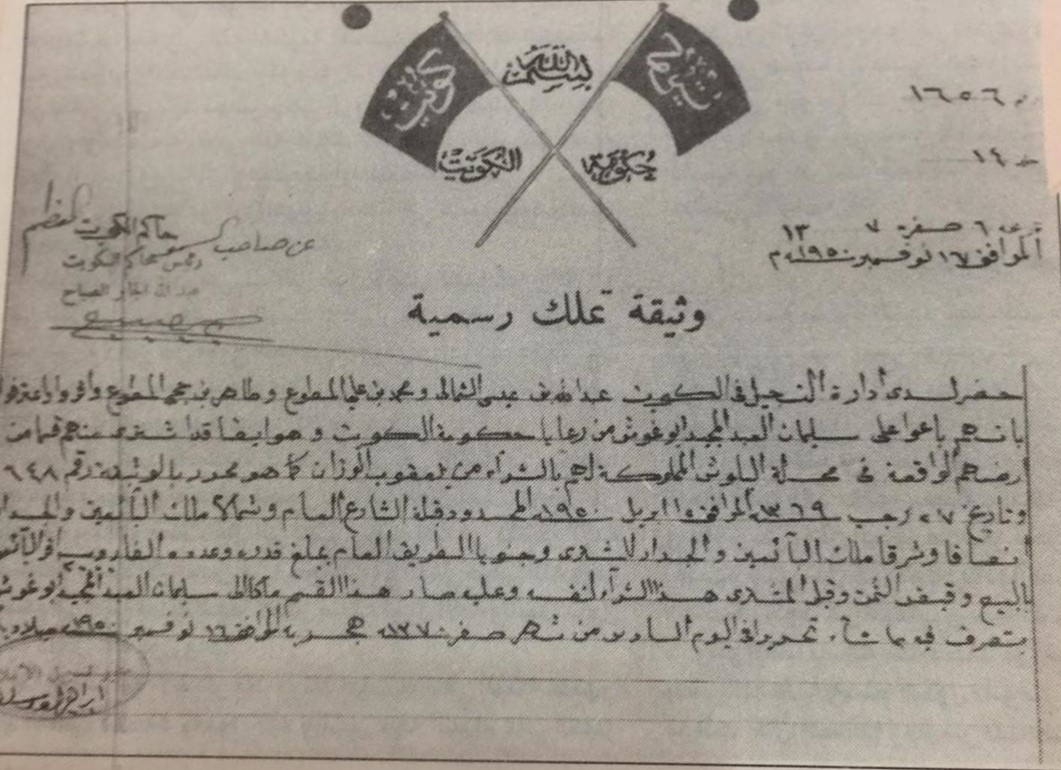 بسم الله
كويت
حكومة الكويت
١٦٥٦
١٤
٦ صفر ١٣٧
الموافق ١٦ نوفمبر ١٩٥٠ م
عن صاحب السمو حاكم الكويت المعظم
رئيس محاكم الكويت
عبد الله الجابر الصباح
وثيقة تملك رسمية
حضر لدى ادارة التسجيل في الكويت عبدالله بن عيسى ومحمد بن علي المطوع وطاهر بن حجي المطوع واقروا واعترفوا
بانهم باعوا على سليمان العبد المجيد ابو غوش من رعايا حكومة الكويت وهو ايضا قد اشترى منهم قسما من
ارضهم الواقعة في محلة البلوش المملوكة لهم بالشراء من يعقوب الوزان كما هو محرر بالوثيقة رقم ٦٤٨
وتاريخ رجب ١٣٦٩ الموافق ابريل ١٩٥٠ المحدود قبلة الشارع العام وشمالا ملك البائعين والجدار
انصافا وشرقا ملك البائعين والجدار للمشتري وجنوبا الطريق العام بمبلغ قدره وعدده
بالبيع وقبض الثمن وقبل المشتري هذا الشراء لنفسه وعليه صار هذا القسم ملكا الى سليمان العبد المجيد ابو غوش
يتصرف فيه بما شاء تحريرا في اليوم السادس من شهر صفر ١٣٧٠ هجرية الموافق ١٦ نوفمبر ١٩٥٠
مدير تسجيل